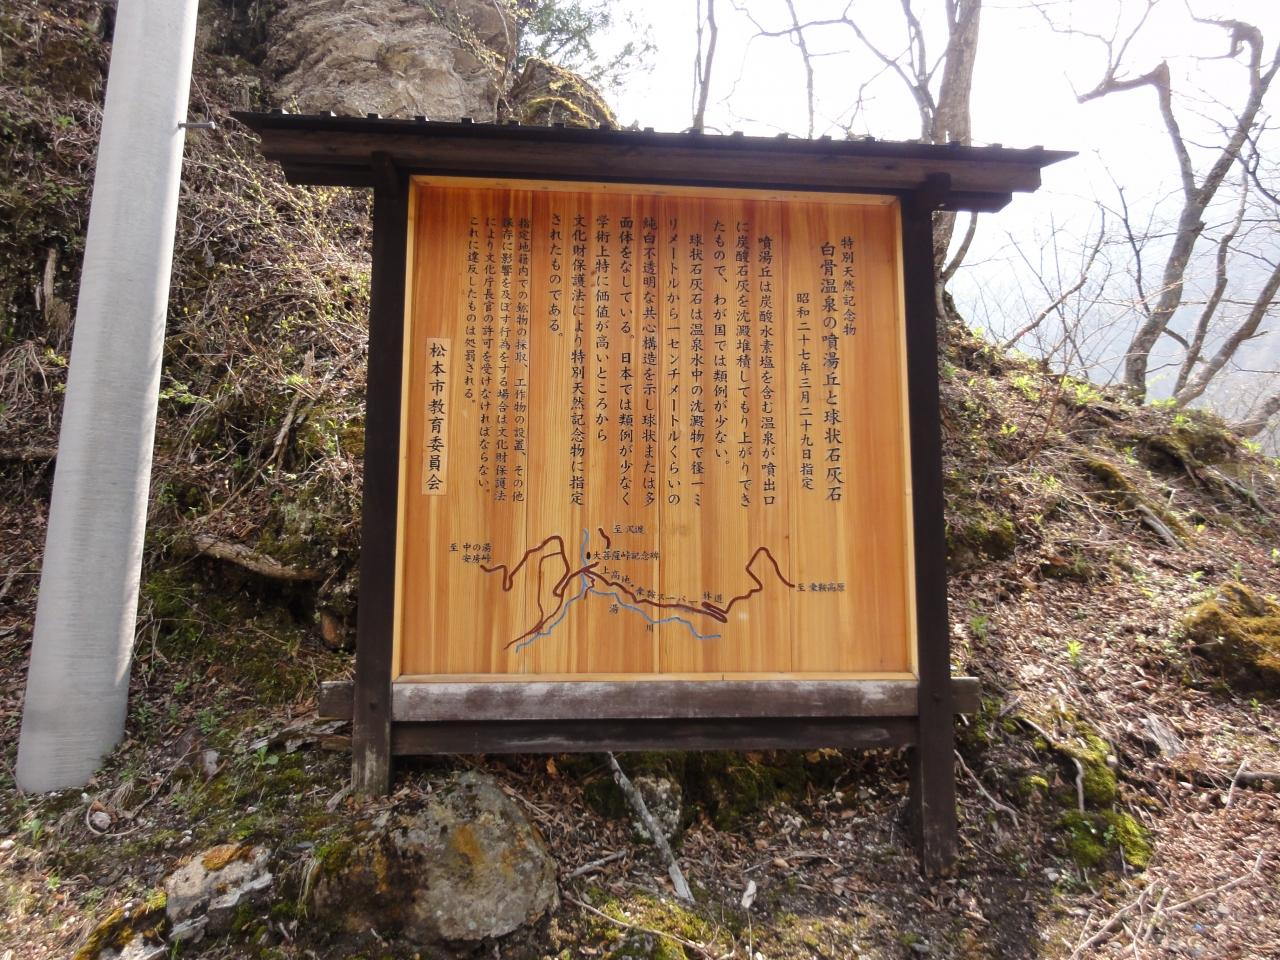 特別天然記念物
白骨温泉の噴湯丘と球状石灰石
昭和二十七年三月二十九日指定
噴湯丘は炭酸水素塩を含む温泉が噴出口
に炭酸石灰を沈澱堆積してもり上がりでき
たもので、わが国では類例が少ない。
球状石灰石は温泉水中の沈澱物で径一ミ
リメートルから一センチメートルくらいの
純白不透明な共心構造を示し球状または多
面体をなしている。日本では類例が少なく
学術上特に価値が高いところから
文化財保護法により特別天然記念物に指定
されたものである。
指定地籍内での鉱物の採取、工作物の設置、その他
保存に影響を及ぼす行為をする場合は文化財保護法
により文化庁長官の許可を受けなければならない。
これに違反したものは処罰される。
松本市教育委員会
至沢渡
至中の湯
安房峠
大菩薩峠記念碑
上高地
乗鞍スーパー林道
湯川
至乗鞍高原